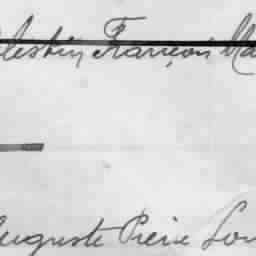 lestin François Ma
Auguste Pierre Lou